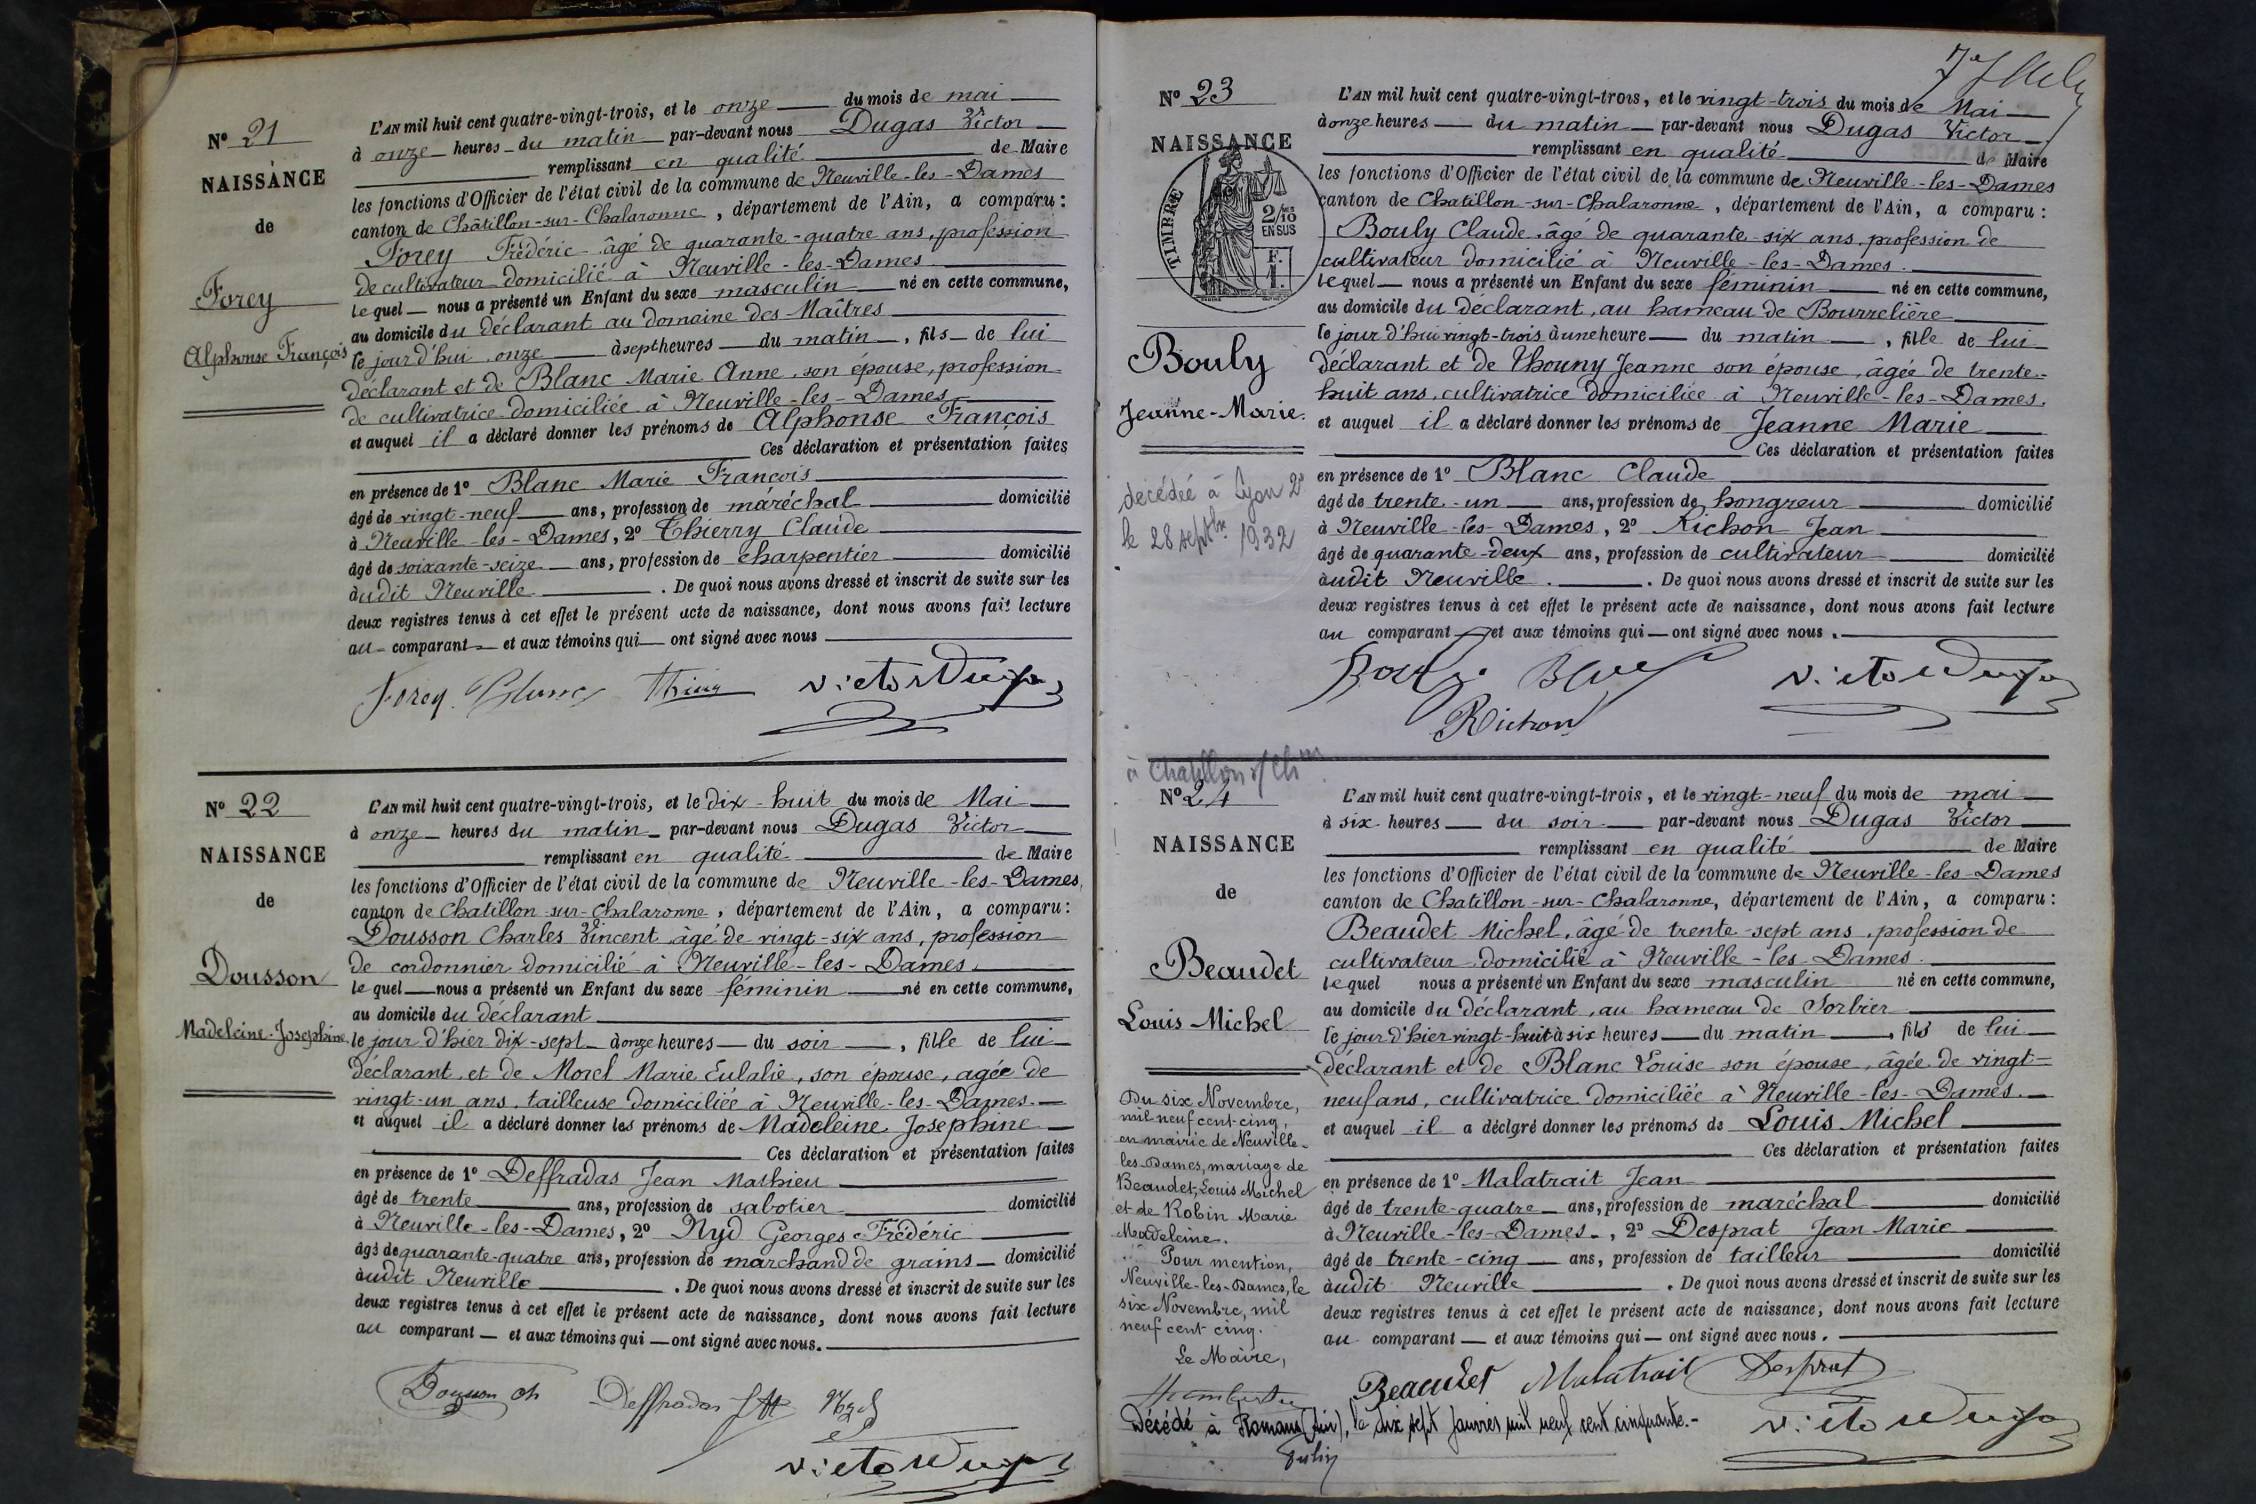 N° 21
NAISSANCE
de
Forey
Alphonse François
L'AN mil huit cent quatre-vingt-trois, et le onze du mois de mai
à onze heures du matin par-devant nous Dugas Victor
remplissant en qualité de Maire
les fonctions d'Officier de l'état civil de la commune de Neuville-les-Dames
canton de Châtillon-sur-Chalaronne, département de l'Ain, a comparu :
Forey Frédéric âgé de quarante-quatre ans, profession
de cultivateur domicilié à Neuville-les-Dames
lequel nous a présenté un Enfant du sexe masculin né en cette commune,
au domicile du déclarant au domaine des Maîtres
le jour d'hui onze à sept heures du matin, fils de lui
déclarant et de Blanc Marie Anne, son épouse, profession
de cultivatrice domiciliée à Neuville-les-Dames
et auquel il a déclaré donner les prénoms de Alphonse François
Ces déclaration et présentation faites
en présence de 1° Blanc Marie François
âgé de vingt-neuf ans, profession de maréchal domicilié
à Neuville-les-Dames, 2° Thierry Claude
âgé de soixante-seize ans, profession de charpentier domicilié
audit Neuville. De quoi nous avons dressé et inscrit de suite sur les
deux registres tenus à cet effet le présent acte de naissance, dont nous avons fait lecture
au comparant et aux témoins qui ont signé avec nous
Forey Blanc Thierry Victor Dugas
N° 22
NAISSANCE
de
Dousson
Madeleine-Josephine
L'AN mil huit cent quatre-vingt-trois, et le dix-huit du mois de Mai
à onze heures du matin par-devant nous Dugas Victor
remplissant en qualité de Maire
les fonctions d'Officier de l'état civil de la commune de Neuville-les-Dames,
canton de Chatillon-sur-Chalaronne, département de l'Ain, a comparu :
Dousson Charles Vincent âgé de vingt-six ans, profession
de cordonnier domicilié à Neuville-les-Dames.
lequel nous a présenté un Enfant du sexe féminin né en cette commune,
au domicile du déclarant
le jour d'hier dix-sept à onze heures du soir, fille de lui
déclarant, et de Morel Marie Eulalie, son épouse, agée de
vingt-un ans, tailleuse domiciliée à Neuville-les-Dames.
et auquel il a déclaré donner les prénoms de Madeleine Josephine
Ces déclaration et présentation faites
en présence de 1° Deffradas Jean Mathieu
âgé de trente ans, profession de sabotier domicilié
à Neuville-les-Dames, 2° Nyd Georges Frédéric
âgé de quarante-quatre ans, profession de marchand de grains domicilié
audit Neuville. De quoi nous avons dressé et inscrit de suite sur les
deux registres tenus à cet effet le présent acte de naissance, dont nous avons fait lecture
au comparant et aux témoins qui ont signé avec nous.
Dousson ch Deffradas Nyd
Victor Dugas
N° 23
NAISSANCE
TIMBRE
2/10
EN SUS
F.
1.
Bouly
Jeanne-Marie.
décédée à Lyon 2°
le 28 septbre 1932
L'AN mil huit cent quatre-vingt-trois, et le vingt-trois du mois de Mai
à onze heures du matin par-devant nous Dugas Victor
remplissant en qualité de Maire
les fonctions d'Officier de l'état civil de la commune de Neuville-les-Dames
canton de Chatillon-sur-Chalaronne, département de l'Ain, a comparu :
Bouly Claude âgé de quarante-six ans, profession de
cultivateur domicilié à Neuville-les-Dames.
lequel nous a présenté un Enfant du sexe féminin né en cette commune,
au domicile du déclarant, au hameau de Bourrelière
le jour d'hui vingt-trois à une heure du matin, fille de lui
déclarant et de Thouny Jeanne son épouse, âgée de trente-
huit ans, cultivatrice domiciliée à Neuville-les-Dames.
et auquel il a déclaré donner les prénoms de Jeanne Marie
Ces déclaration et présentation faites
en présence de 1° Blanc Claude
âgé de trente-un ans, profession de hongreur domicilié
à Neuville-les-Dames, 2° Richon Jean
âgé de quarante-deux ans, profession de cultivateur domicilié
audit Neuville. De quoi nous avons dressé et inscrit de suite sur les
deux registres tenus à cet effet le présent acte de naissance, dont nous avons fait lecture
au comparant et aux témoins qui ont signé avec nous.
Bouly Blanc Victor Dugas
Richon
à Chatillon s/ Chne
N° 24
NAISSANCE
de
Beaudet
Louis Michel
Du six Novembre,
mil neuf cent cinq,
en mairie de Neuville-
les-Dames, mariage de
Beaudet, Louis Michel
et de Robin Marie
Madeleine.
Pour mention,
Neuville-les-Dames, le
six Novembre, mil
neuf cent cinq.
Le Maire,
L'AN mil huit cent quatre-vingt-trois, et le vingt-neuf du mois de mai
à six heures du soir par-devant nous Dugas Victor
remplissant en qualité de Maire
les fonctions d'Officier de l'état civil de la commune de Neuville-les-Dames
canton de Chatillon-sur-Chalaronne, département de l'Ain, a comparu :
Beaudet Michel, âgé de trente-sept ans, profession de
cultivateur domicilié à Neuville-les-Dames.
lequel nous a présenté un Enfant du sexe masculin né en cette commune,
au domicile du déclarant, au hameau de Sorbier
le jour d'hier vingt-huit à six heures du matin, fils de lui
déclarant et de Blanc Louise son épouse, âgée de vingt-
neuf ans, cultivatrice domiciliée à Neuville-les-Dames.
et auquel il a déclaré donner les prénoms de Louis Michel
Ces déclaration et présentation faites
en présence de 1° Malatrait Jean
âgé de trente-quatre ans, profession de maréchal domicilié
à Neuville-les-Dames, 2° Desprat Jean Marie
âgé de trente-cinq ans, profession de tailleur domicilié
audit Neuville. De quoi nous avons dressé et inscrit de suite sur les
deux registres tenus à cet effet le présent acte de naissance, dont nous avons fait lecture
au comparant et aux témoins qui ont signé avec nous.
Beaudet Malatrait Desprat
Victor Dugas
Décédé à Romans (Ain), le dix sept Janvier mil neuf cent cinquante.-